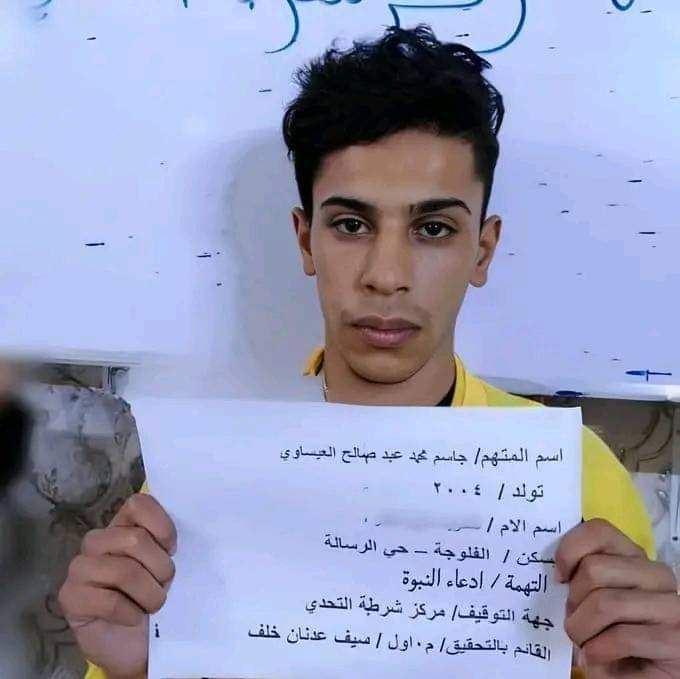 اسم المتهم/ جاسم محمد عبد صالح العيساوي
تولد / ٢٠٠٤
اسم الام /
سكن / الفلوجة – حي الرسالة
التهمة / ادعاء النبوة
جهة التوقيف/ مركز شرطة التحدي
القائم بالتحقيق/ م٠اول / سيف عدنان خلف